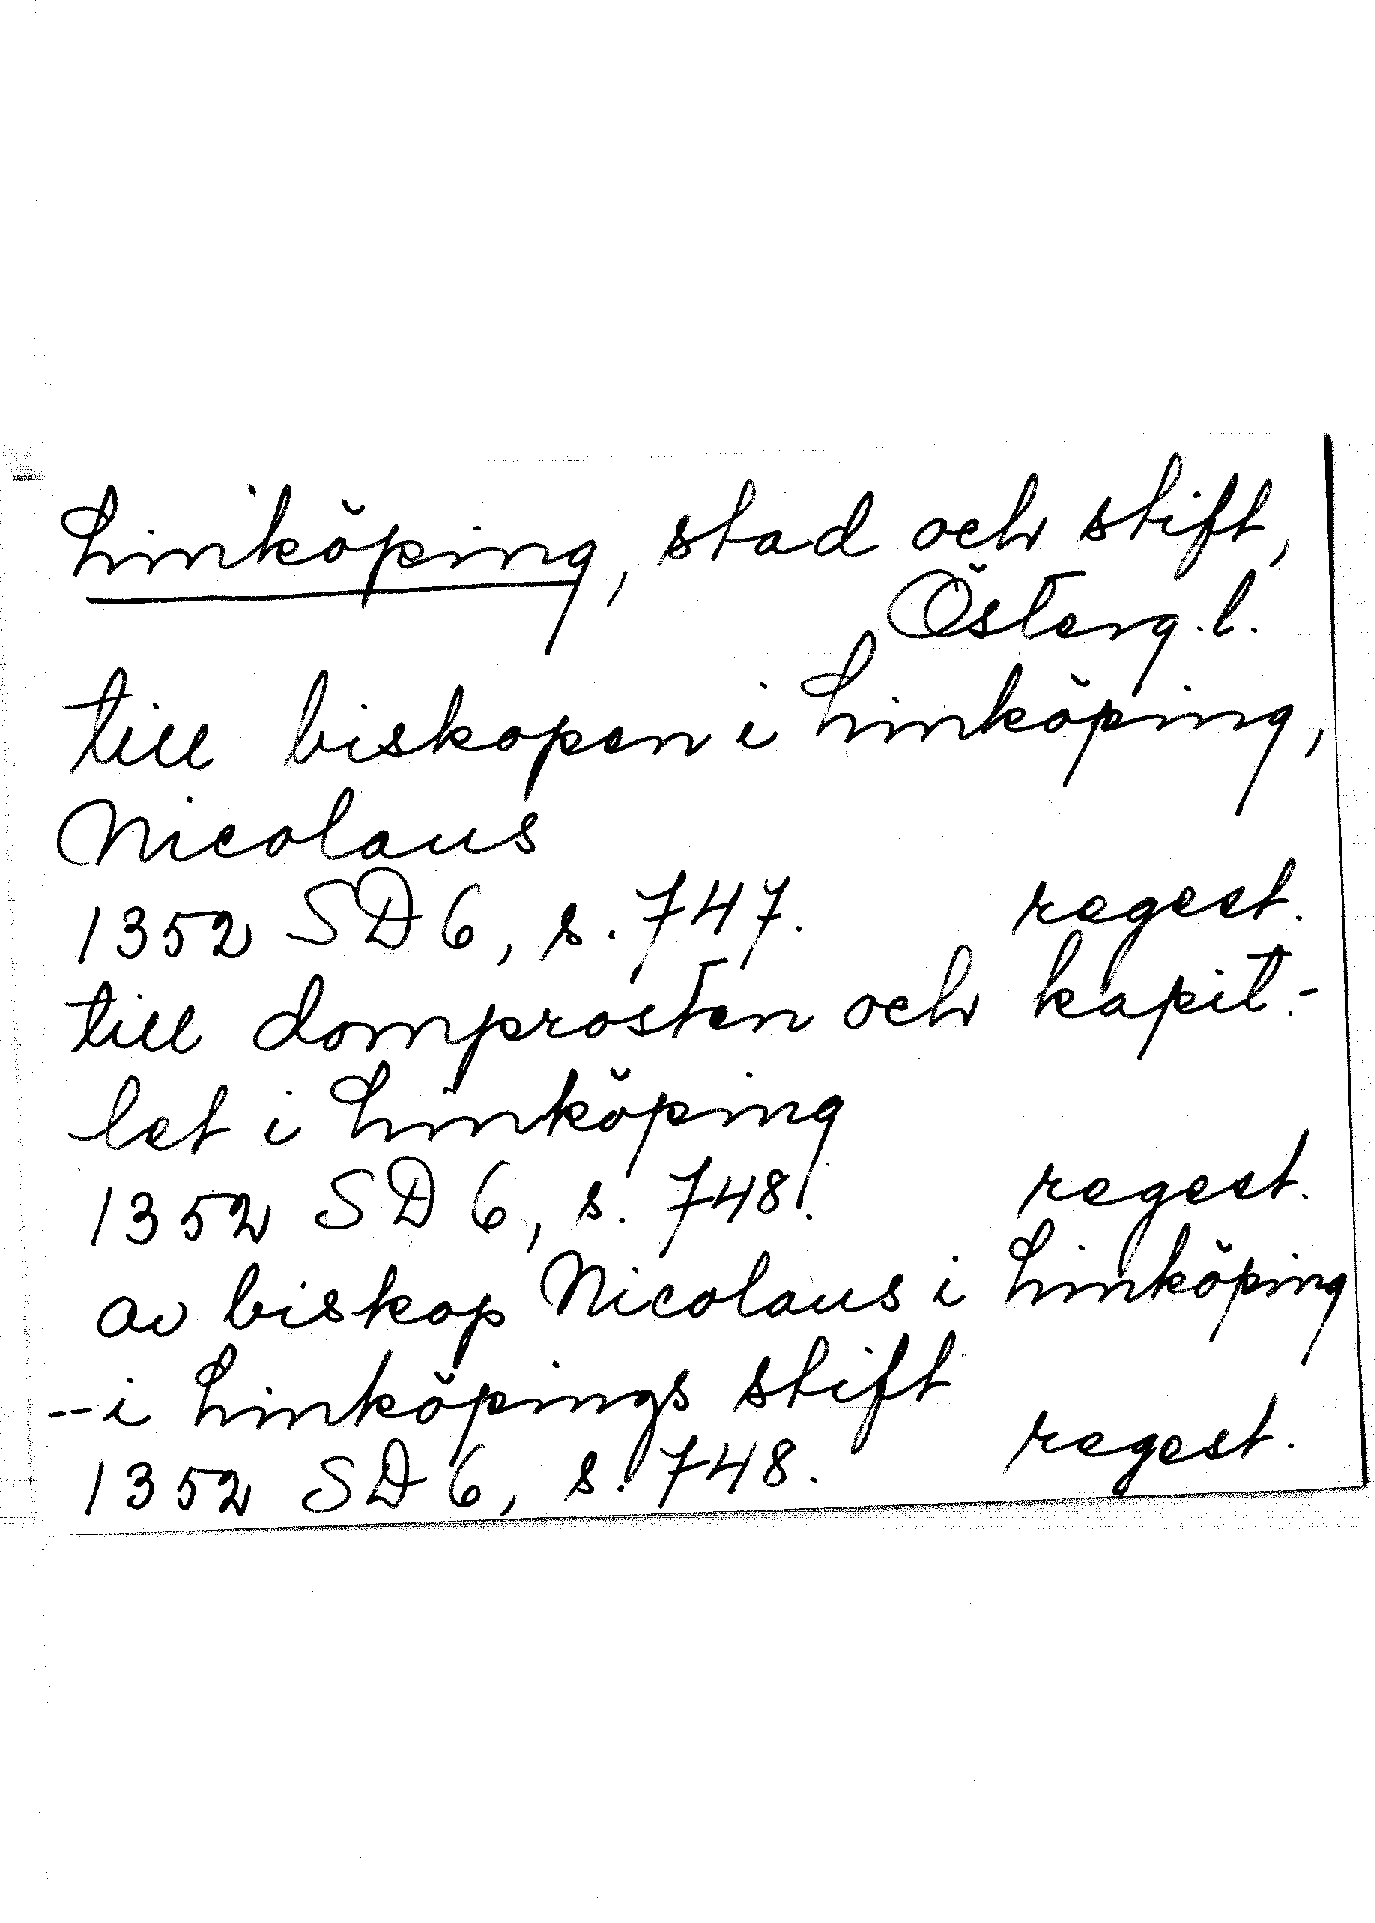 Linköping, stad och stift,
Österg.l.
till biskopen i Linköping,
Nicolaus
1352 SD 6, s. 747. regest.
till domprosten och kapit-
let i Linköping
1352 SD 6, s. 748. regest.
av biskop Nicolaus i Linköping
-- i Linköpings stift
1352 SD 6, s. 748. regest.